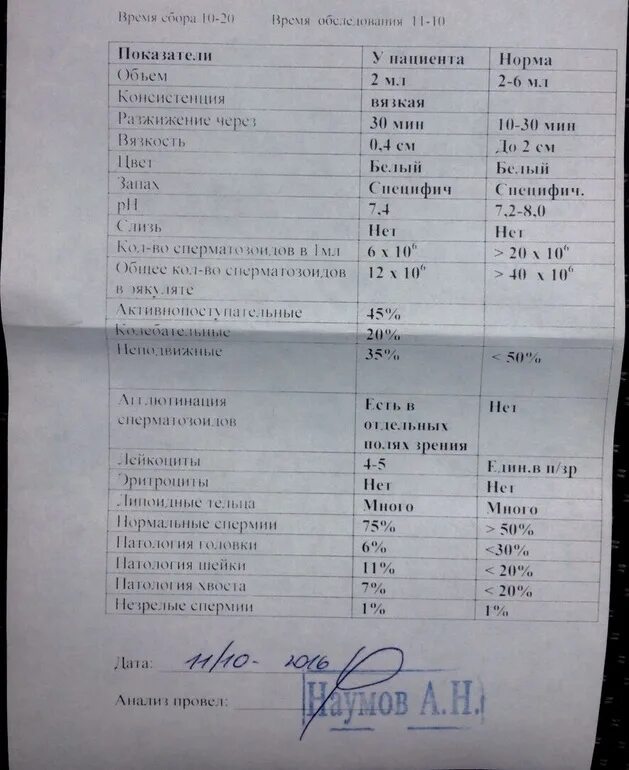 Время сбора 10-20 Время обследования 11-10
Показатели У пациента Норма
Объем 2 мл 2-6 мл
Консистенция вязкая
Разжижение через 30 мин 10-30 мин
Вязкость 0,4 см До 2 см
Цвет Белый Белый
Запах Специфич Специфич.
pH 7,4 7,2-8,0
Слизь Нет Нет
Кол-во сперматозоидов в 1мл 6 x 10⁶ > 20 x 10⁶
Общее кол-во сперматозоидов 12 x 10⁶ > 40 x 10⁶
в эякуляте
Активнопоступательные 45%
Колебательные 20%
Неподвижные 35% < 50%
Агглютинация Есть в Нет
сперматозоидов отдельных
полях зрения
Лейкоциты 4-5 Един.в п/зр
Эритроциты Нет Нет
Липоидные тельца Много Много
Нормальные спермии 75% > 50%
Патология головки 6% <30%
Патология шейки 11% < 20%
Патология хвоста 7% < 20%
Незрелые спермии 1% 1%
Дата: 11/10- 2016
Анализ провел: Наумов А.Н.